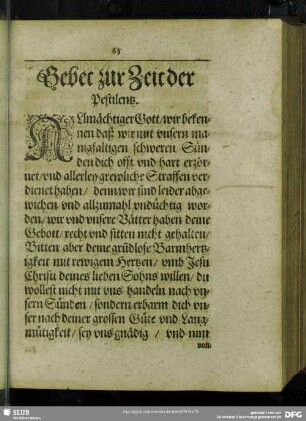 65
Gebet zur Zeit der
Pestilentz.
ALlmächtiger Gott / wir beken-
nen daß wir mit vnsern ma-
nigfaltigen schweren Sün-
den dich offt vnd hart erzör-
net / vnd allerley grewliche Straffen ver-
dienet haben / denn wir sind leider abge-
wichen vnd allzumahl vndüchtig wor-
den / wir vnd vnsere Vätter haben deine
Gebott / recht vnd sitten nicht gehalten /
Bitten aber deine grüdlose Barmhertz-
igkeit mit rewigem Hertzen / vmb Jesu
Christi deines lieben Sohns willen / du
wollest nicht mit vns handeln nach vn-
sern Sünden / sondern erbarm dich vn-
ser nach deiner grossen Güte vnd Lang-
mütigkeit / sey vns gnädig / vnd nim
von
SLUB
Wir führen Wissen.
gefördert von der
Deutschen Forschungsgemeinschaft
DFG